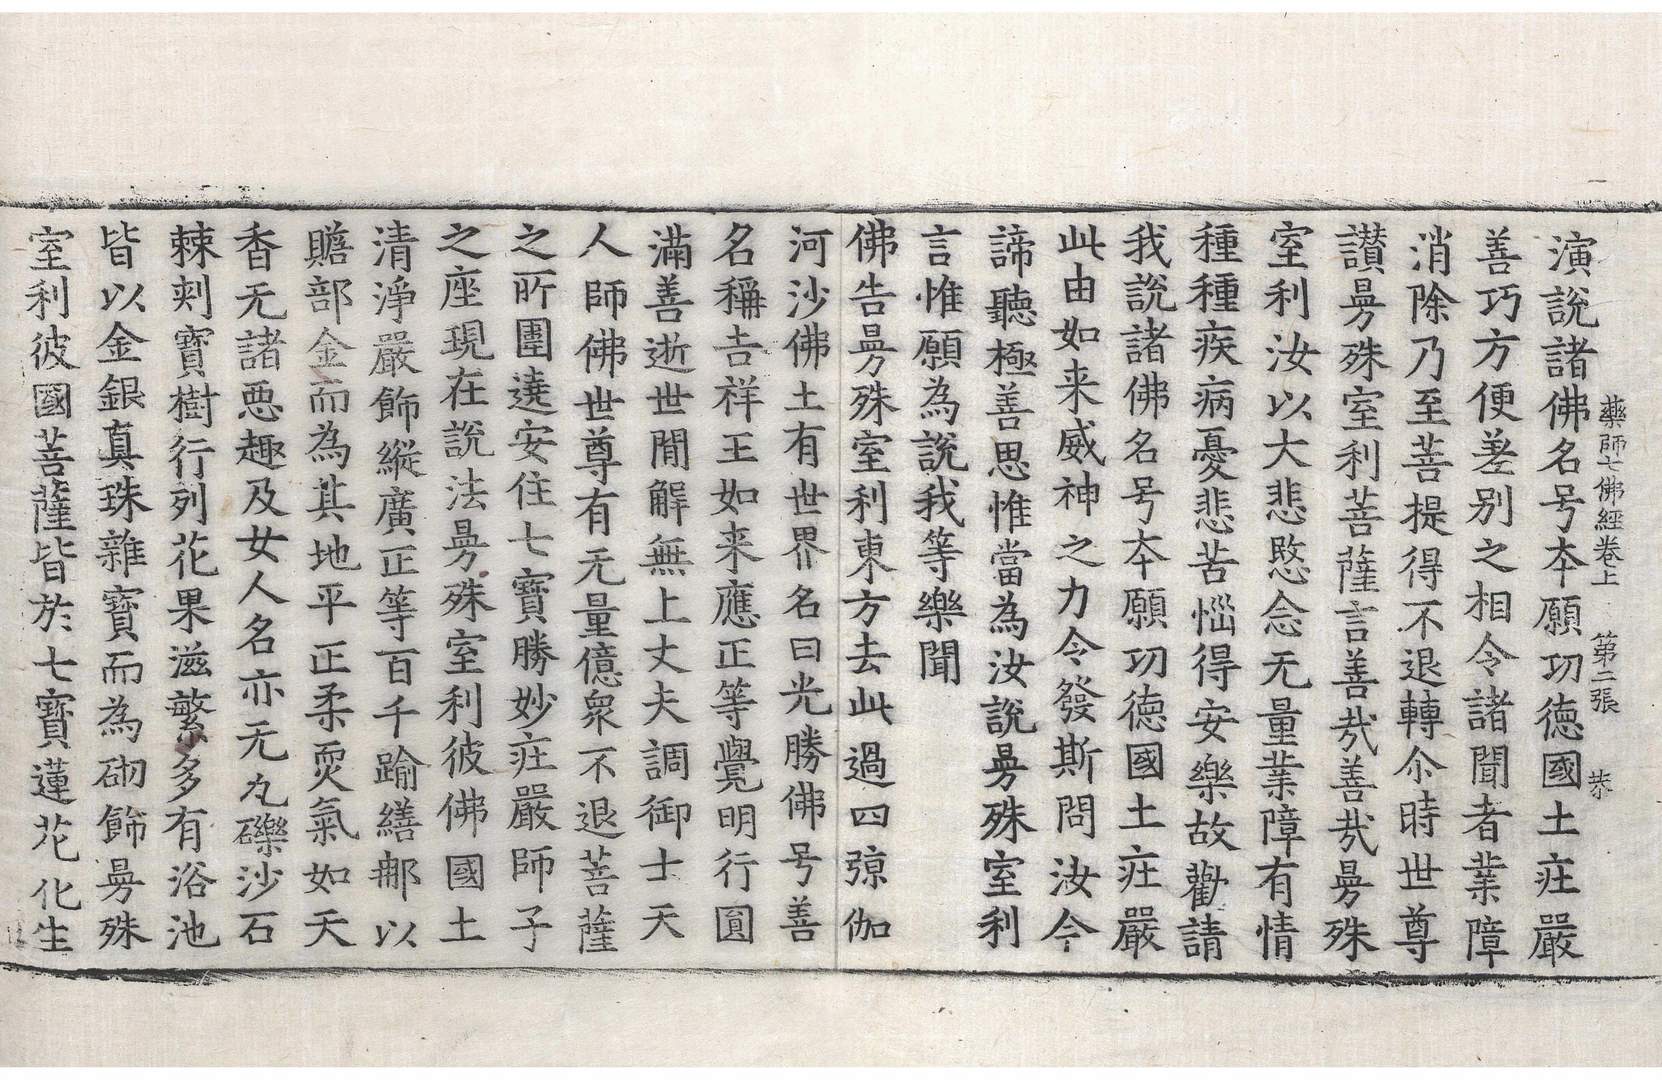 藥師七佛經卷上 第二張 恭
演說諸佛名号本願功德國土莊嚴
善巧方便差别之相令諸聞者業障
消除乃至菩提得不退轉尒時世尊
讃曼殊室利菩薩言善㢤善㢤曼殊
室利汝以大悲愍念无量業障有情
種種疾病憂悲苦惱得安樂故勸請
我說諸佛名号本願功德國土莊嚴
此由如来威神之力令發斯問汝今
諦聽極善思惟當為汝說曼殊室利
言惟願為說我等樂聞
佛告曼殊室利東方去此過四殑伽
河沙佛土有世界名曰光勝佛号善
名稱吉祥王如来應正等覺明行圓
滿善逝世間解無上丈夫調御士天
人師佛世尊有无量億衆不退菩薩
之所圍遶安住七寶勝妙莊嚴師子
之座現在說法曼殊室利彼佛國土
清淨嚴飾縱廣正等百千踰繕那以
贍部金而為其地平正柔耎氣如天
香无諸惡趣及女人名亦无瓦礫沙石
棘刺寶樹行列花果滋繁多有浴池
皆以金銀真珠雜寶而為砌飾曼殊
室利彼國菩薩皆於七寶蓮花化生